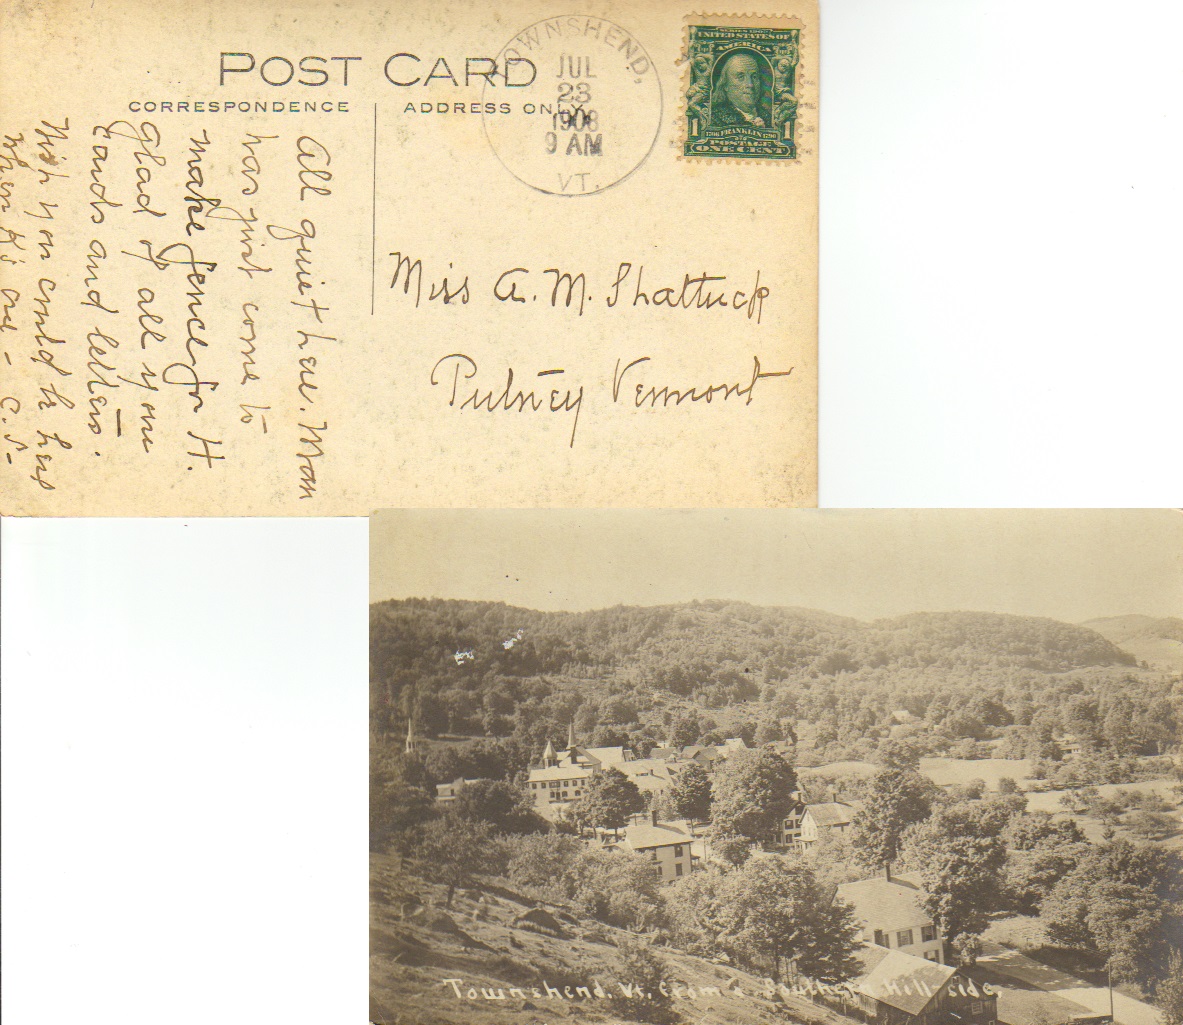 POST CARD
CORRESPONDENCE
ADDRESS ONLY
TOWNSHEND,
JUL
23
1908
9 AM
VT.
SERIES 1902
UNITED STATES OF
AMERICA
1 1
FRANKLIN
POSTAGE
ONE CENT
Miss A. M. Shattuck
Putney Vermont
All quiet here. Man
has just come to
make fence for H.
Glad of all your
cards and letters.
Wish you could be here
when K's are - C.S-
Townshend, Vt. from a Southern Hill-side,